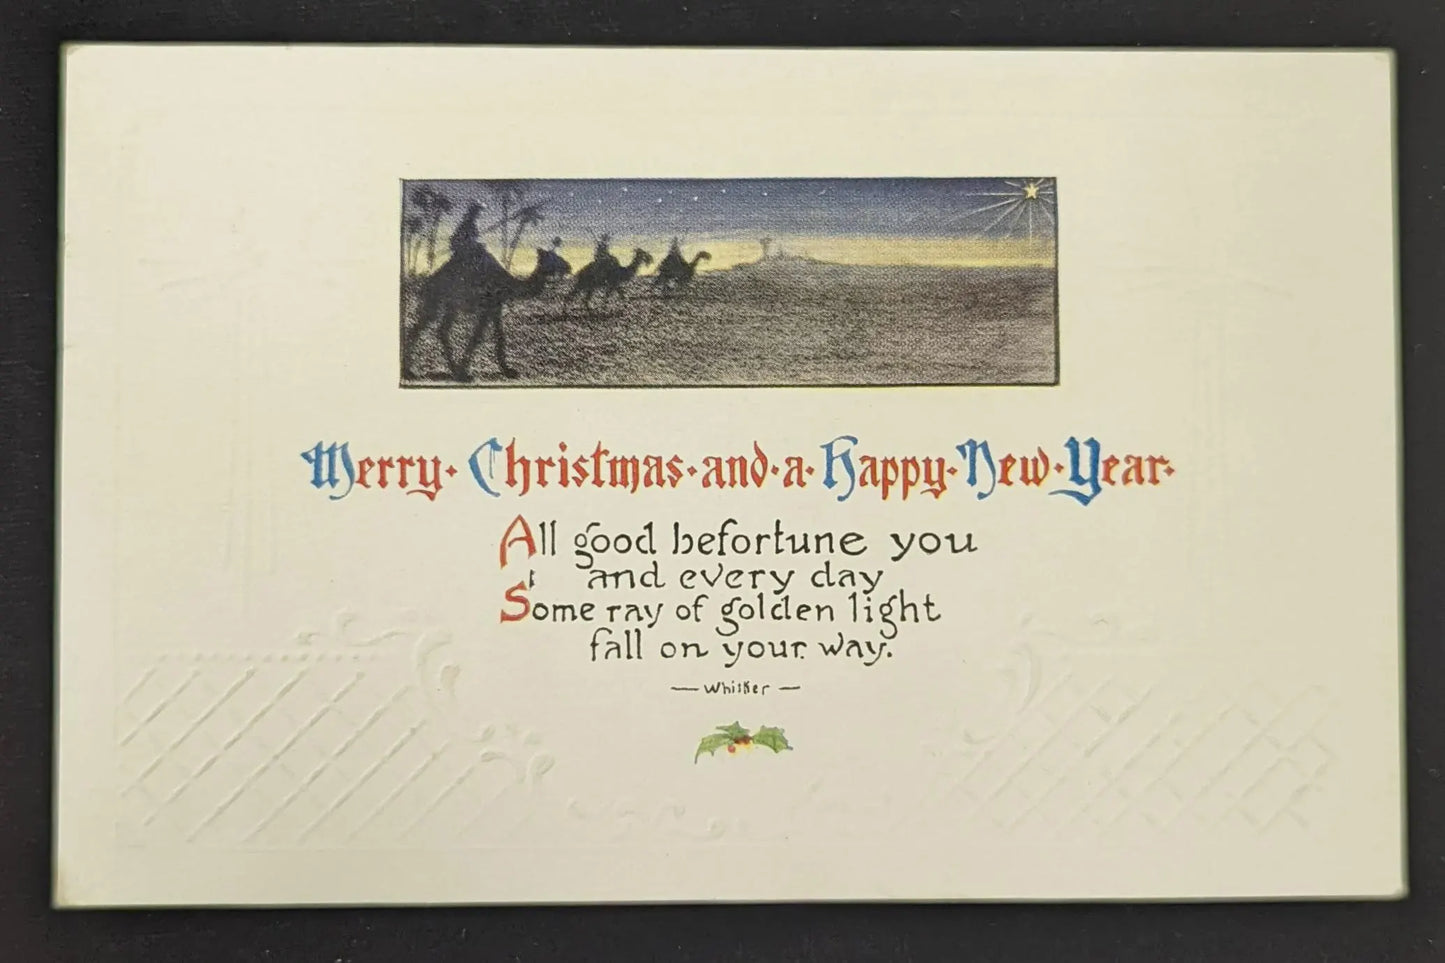 Merry · Christmas · and · a · Happy · New · Year ·
All good befortune you
and every day
Some ray of golden light
fall on your way.
— Whisker —